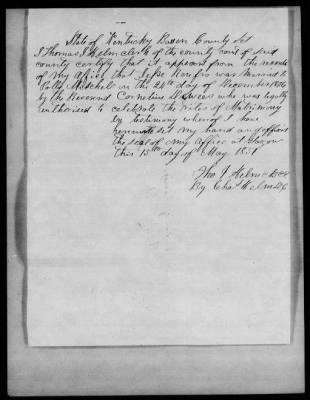 State of Kentucky Barren County Sct
I Thomas J Helm clerk of the county court of said
county certify that it appears from the records
of my office that Jesse Renfro was married to
Polly Mitchel on the 24th day of December 1806
by the Reverend Cornelius who was legally
authorised to celebrate the rites of Matrimony
In testimony whereof I have
hereunto set my hand and affixed
the seal of my office at Glasgow
this 15th day of May 1851
Tho J Helm
By Chas Helm DC